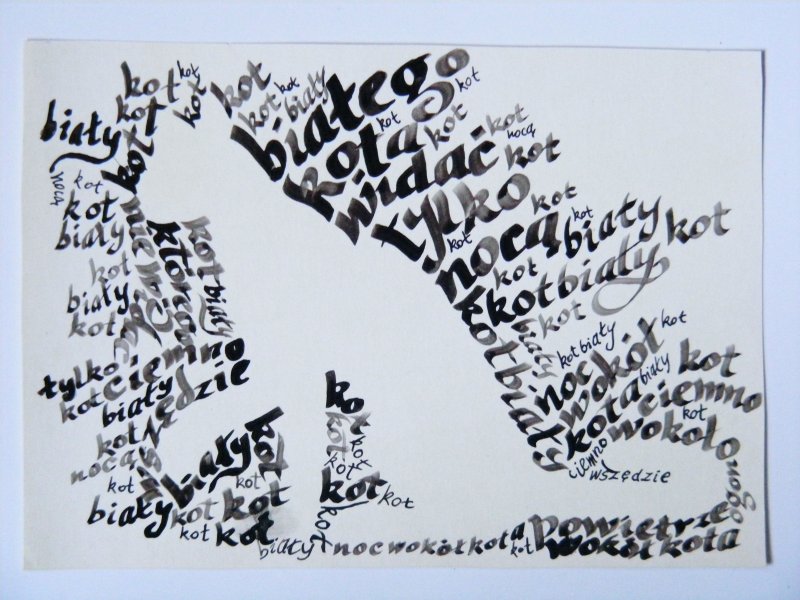 kot
kot
kot
kot
kot
biały
kot
nocą
kot
kot
biały
kot
biały
kot
kot
biały
która
niewidzialna
kot
kot
kot
biały
białego
kota
widać
tylko
nocą
kot
kot
kot
kot
nocą
kot
kot
kot
kot
kot
biały
kot
biały
kot
kot
kot
biały
kot
biały
kot
kot biały
noc
wokół
kota
kot
biały
kot
ciemno
kot
wokoło
ciemno
wszędzie
ogona
tylko
ciemno
kot
biały
wszędzie
kot
nocą
kot
biały
kot
biały
kot
kot
kot
kot
kot
kot
kot
kot
kot
kot
kot
kot
biały
noc wokół kota
kot
powietrze
wokół kota